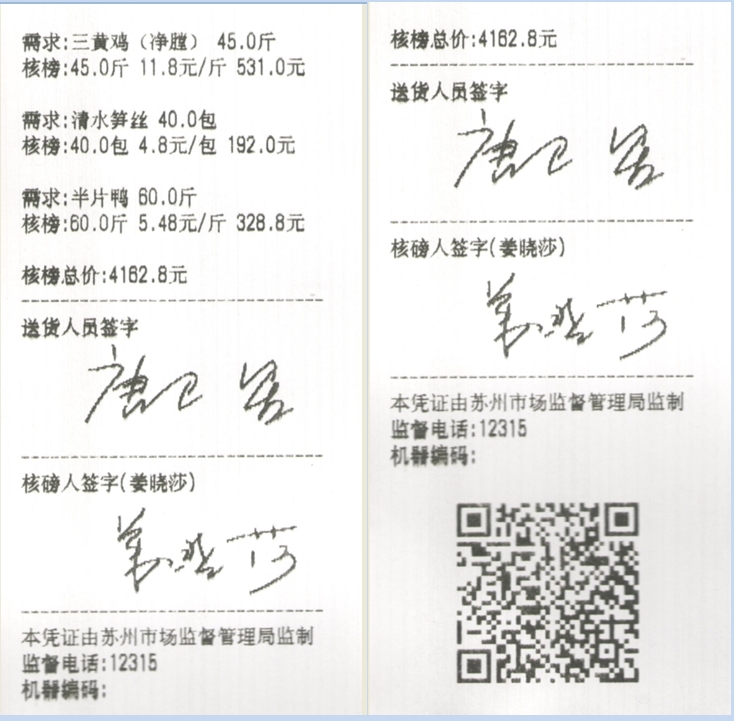 需求:三黄鸡（净膛） 45.0斤
核榜:45.0斤 11.8元/斤 531.0元
需求:清水笋丝 40.0包
核榜:40.0包 4.8元/包 192.0元
需求:半片鸭 60.0斤
核榜:60.0斤 5.48元/斤 328.8元
核榜总价:4162.8元
送货人员签字
核磅人签字(姜晓莎)
姜晓莎
本凭证由苏州市场监督管理局监制
监督电话:12315
机器编码:
核榜总价:4162.8元
送货人员签字
核磅人签字(姜晓莎)
姜晓莎
本凭证由苏州市场监督管理局监制
监督电话:12315
机器编码: